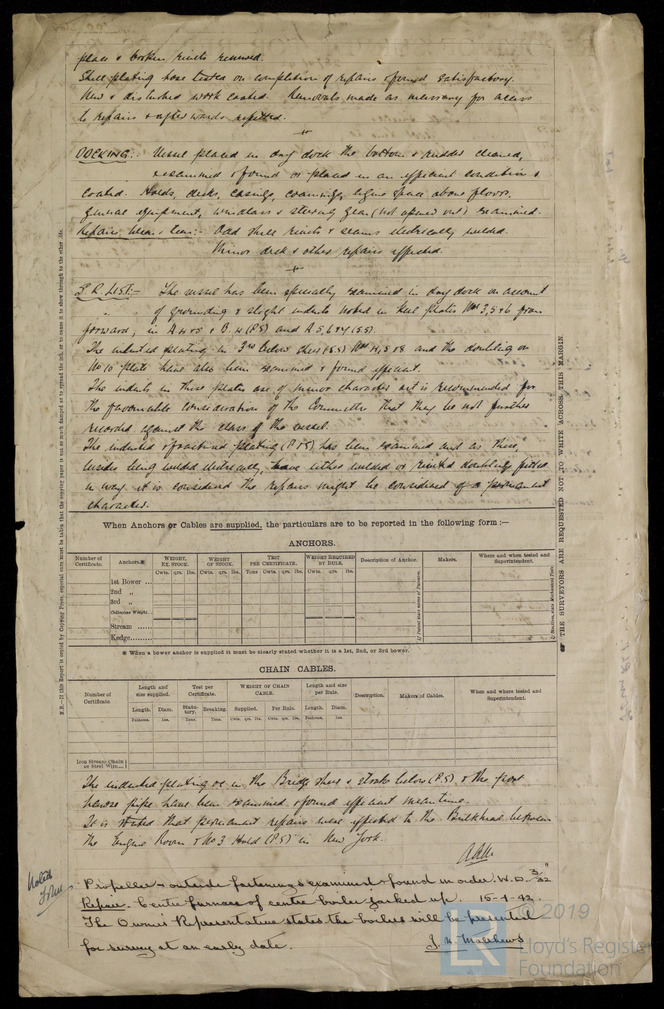 place & broken rivets renewed.
Shell plating hose tested on completion of repairs & found satisfactory.
New & disturbed work coated. Removals made as necessary for access
to repairs & afterwards refitted.
DOCKING:- Vessel placed in dry dock the bottom & rudder cleaned,
examined & found or placed in an efficient condition &
coated. Holds, decks, casing, coamings, space above floors,
general equipment, windlass & steering gear (not opened out) examined.
Repairs, wear & tear:- Odd shell rivets & seams electrically welded.
Minor deck & other repairs effected.
S.R. LIST:- The vessel has been specially examined in dry dock on account
of grounding & slight indents noted in keel plates Nos 3, 5 & 6 from
forward, in A 4 & 5 & B (PS) and A 5, 6 & 7 (SS).
The indented plating in 3rd below sheer (SS) Nos 4, 5 & 8 and the doubling on
No 10 plate have also been examined & found efficient.
The indents in these plates are of minor character and it is recommended for
the favourable consideration of the Committee that they be not further
recorded against the class of the vessel.
The indented & fractured plating (P&S) has been examined and as these,
besides being welded electrically, have either welded or riveted doublings fitted
in way, it is considered the repairs might be considered of a permanent
character.
When Anchors or Cables are supplied, the particulars are to be reported in the following form :—
ANCHORS.
Number of Certificate. Anchors.* WEIGHT, EX. STOCK. WEIGHT OF STOCK. TEST PER CERTIFICATE. WEIGHT REQUIRED BY RULE. Description of Anchor. Makers. Where and when tested and Superintendent.
Cwts. qrs. lbs. Cwts. qrs. lbs. Tons Cwts. qrs. lbs. Cwts. qrs. lbs.
1st Bower ...
2nd „
3rd „
Collective Weight.
Stream ......
Kedge.........
* When a bower anchor is supplied it must be clearly stated whether it is a 1st, 2nd, or 3rd bower.
CHAIN CABLES.
Number of Certificate. Length and size supplied. Test per Certificate. WEIGHT OF CHAIN CABLE. Length and size per Rule. Description. Makers of Cables. When and where tested and Superintendent.
Length. Diam. Statutory. Breaking. Supplied. Per Rule. Length. Diam.
Fathoms. Ins. Tons. Tons. Cwts. qrs. lbs. Cwts. qrs. lbs. Fathoms. Ins.
Iron Stream Chain or Steel Wire...
The indented plating &c in the Bridge sheer & strake below (PS) & the port
hawse pipe have been examined & found efficient meantime.
It is stated that permanent repairs were effected to the Bulkhead between
the Engine Room & No 3 Hold (PS) in New York.
Noted
Propeller & outside fastenings examined & found in order. W.D. 3/32"
Repair. Centre furnace of centre boiler jacked up. 15-1-42.
The Owners Representative states the boilers will be presented
for survey at an early date.
J. W. Matthews
THE SURVEYORS ARE REQUESTED NOT TO WRITE ACROSS THIS MARGIN
© 2019
LR
Lloyd's Register
Foundation